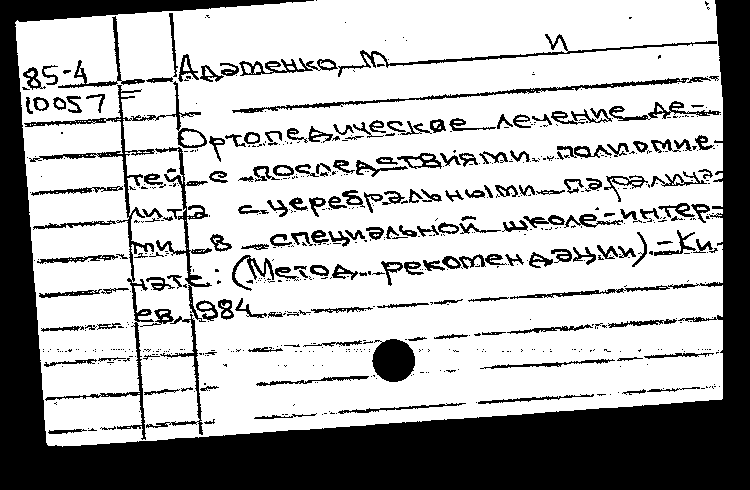 85-4 Адаменко, М И
10057
Ортопедическое лечение де-
тей с последствиями полиомие-
лита с церебральными паралича-
ми в специальной школе-интер-
нате: (Метод. рекомендации).-Ки-
ев, 1984